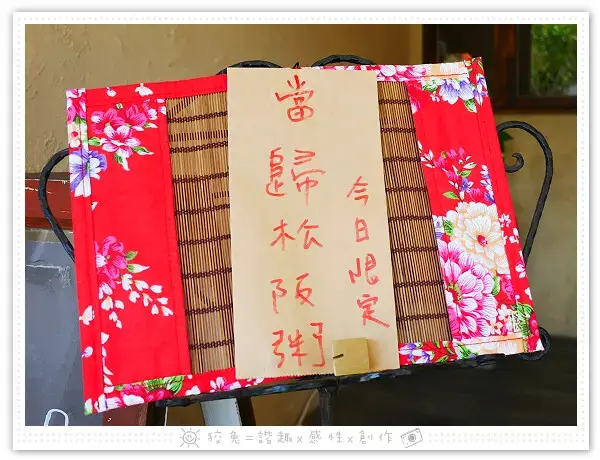 今日限定
當歸松阪粥
狡兔=諧趣x感性x創作